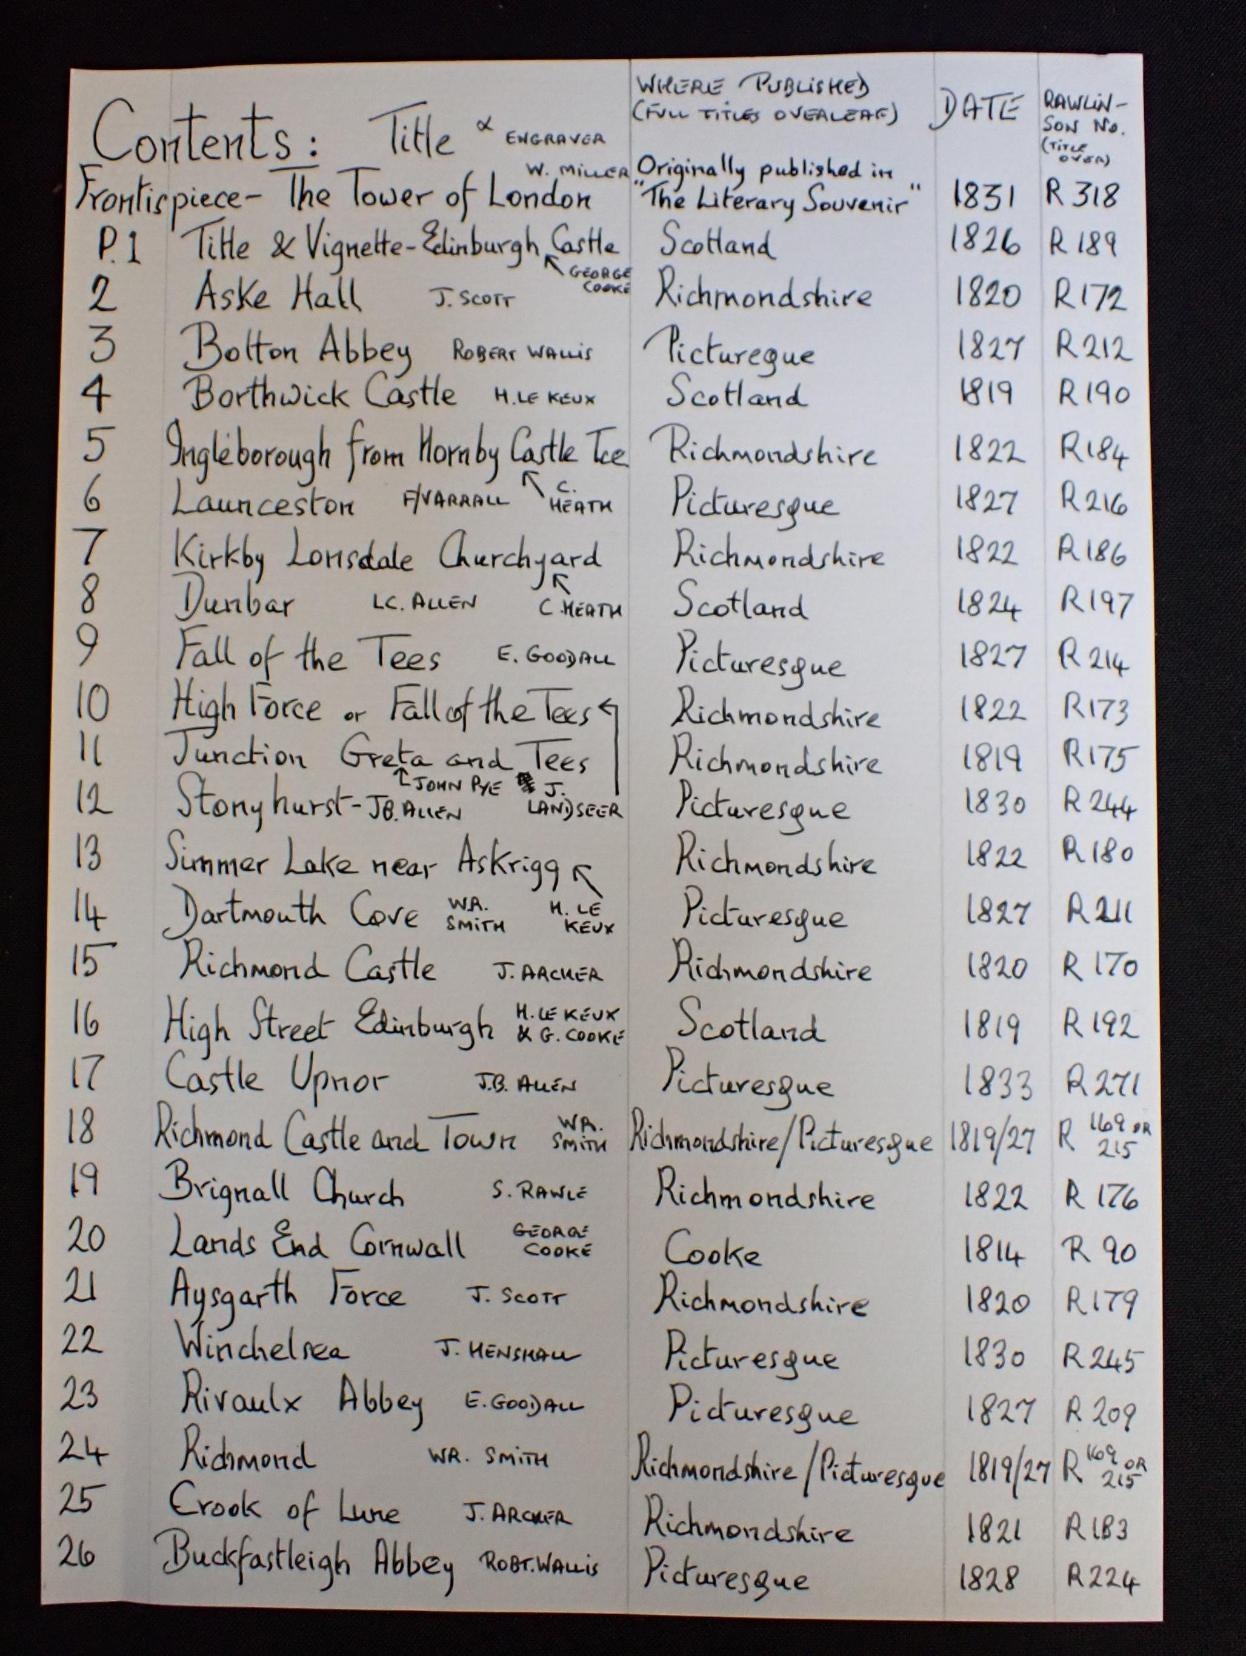 Contents: Title & ENGRAVER WHERE PUBLISHED (FULL TITLES OVERLEAF) DATE RAWLIN-SON No. (TITLE OVER)
Frontispiece - The Tower of London W. MILLER Originally published in "The Literary Souvenir" 1831 R 318
P.1 Title & Vignette - Edinburgh Castle GEORGE COOKE Scotland 1826 R 189
2 Aske Hall J. SCOTT Richmondshire 1820 R172
3 Bolton Abbey ROBERT WALLIS Pictureque 1827 R212
4 Borthwick Castle H. LE KEUX Scotland 1819 R190
5 Ingleborough from Hornby Castle Tce C. HEATH Richmondshire 1822 R184
6 Launceston F/VARRALL Picturesque 1827 R216
7 Kirkby Lonsdale Churchyard C. HEATH Richmondshire 1822 R186
8 Dunbar LC. ALLEN Scotland 1824 R197
9 Fall of the Tees E. GOODALL Picturesque 1827 R 214
10 High Force or Fall of the Tees J. LANDSEER Richmondshire 1822 R173
11 Junction Greta and Tees JOHN PYE Richmondshire 1819 R175
12 Stonyhurst - J.B. ALLEN Picturesque 1830 R 244
13 Simmer Lake near Askrigg H. LE KEUX Richmondshire 1822 R 180
14 Dartmouth Cove WR. SMITH Picturesque 1827 R 211
15 Richmond Castle J. ARCHER Richmondshire 1820 R 170
16 High Street Edinburgh H. LE KEUX & G. COOKE Scotland 1819 R 192
17 Castle Upnor J.B. ALLEN Picturesque 1833 R 271
18 Richmond Castle and Town WR. SMITH Richmondshire/Picturesque 1819/27 R 169 OR 215
19 Brignall Church S. RAWLE Richmondshire 1822 R 176
20 Lands End Cornwall GEORGE COOKE Cooke 1814 R 90
21 Aysgarth Force J. SCOTT Richmondshire 1820 R179
22 Winchelsea J. HENSHALL Picturesque 1830 R 245
23 Rivaulx Abbey E. GOODALL Picturesque 1827 R 209
24 Richmond WR. SMITH Richmondshire/Picturesque 1819/27 R 169 OR 215
25 Crook of Lune J. ARCHER Richmondshire 1821 R183
26 Buckfastleigh Abbey ROBT. WALLIS Picturesque 1828 R224